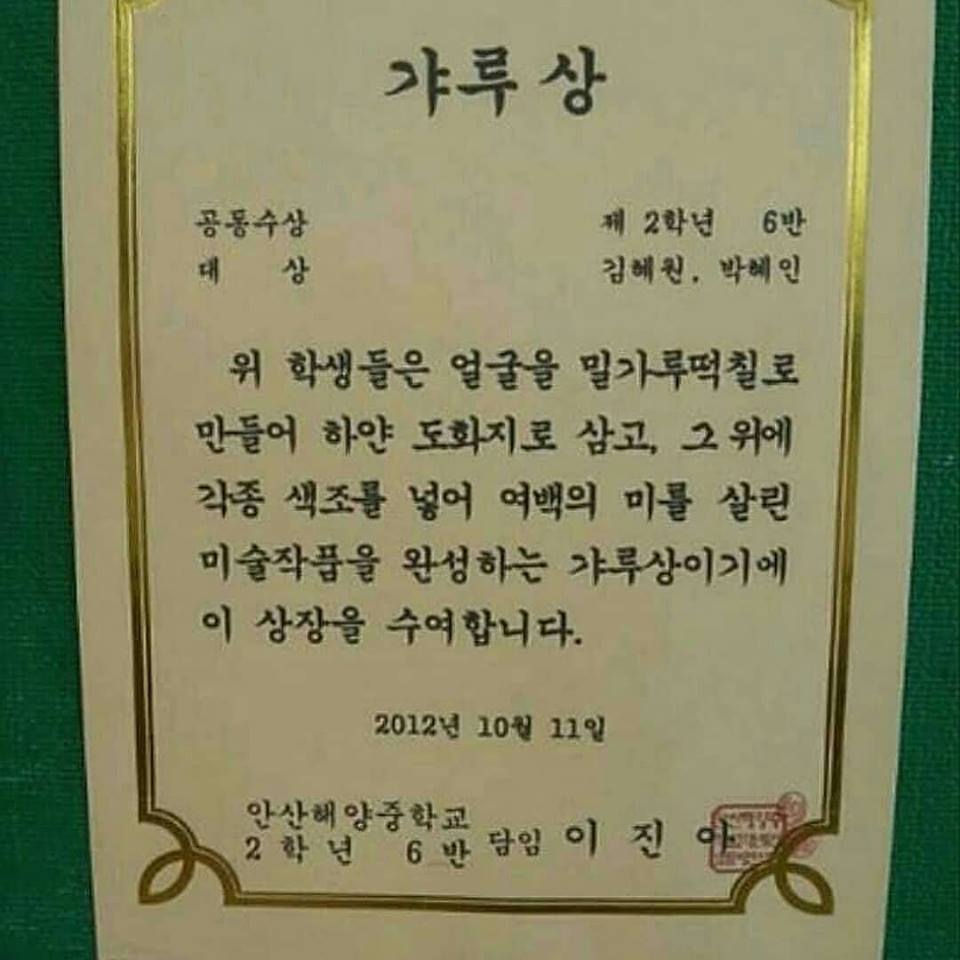 갸루 상
공동수상 제 2학년 6반
대 상 김혜원, 박혜인
위 학생들은 얼굴을 밀가루떡칠로
만들어 하얀 도화지로 삼고, 그 위에
각종 색조를 넣어 여백의 미를 살린
미술작품을 완성하는 갸루상이기에
이 상장을 수여합니다.
2012년 10월 11일
안산해양중학교
2 학 년 6 반 담임 이 진 아